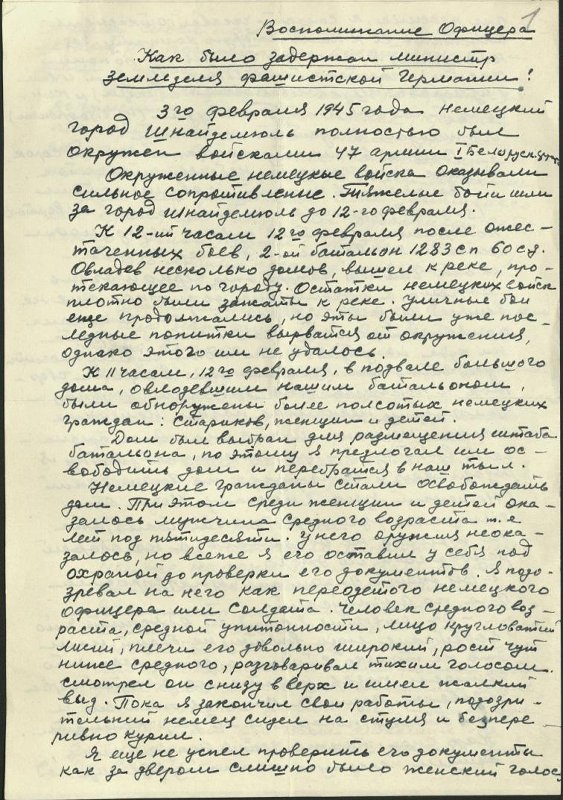 1
Воспоминание Офицера
Как было задержан министр
земледелия фашистской Германии!
3го февраля 1945 года немецкий
город Шнайдемюль полностью был
окружен войсками 47 армии I Белорус.
Окруженные немецкие войска оказывали
сильное сопротивление. Тяжелые бои шли
за город Шнайдемюль до 12-го февраля.
К 12-ий часам 12го февраля после ожес-
точенных боев, 2-ой батальон 1283 сп 60 сд.
Овладев несколько домов, вышел к реке, про-
текающее по городу. Остатки немецких войск
плотно были зажаты к реке. Уличные бои
еще продолжались, но эты были уже пос-
ледные попитки вырватся от окружения,
однако этого им не удалось.
К 11 часам, 12го февраля, в подвале большого
дома, овлодевшим нашим батальоном,
были обноружены более полсотых немецких
граждан: Стариков, женщин и детей.
Дом был выбран для размещения штаба
батальона, по этому я предлогал им ос-
вободить дом и перебратся в наш тыл.
Немецкие граждани стали освобождать
дом. При этом среди женщин и детей ока-
залось мужчина среднего возраста т.е
лет под пятидесяти. У него оружия неока-
залось, но всеже я его оставил у себя под
охраной до проверки его документов. Я подо-
зревал на него как переодетого немецкого
офицера или солдата. Человек среднего воз-
раста, средной упитонности, лицо кругловатий
плечи его довольно широкий, рост чут
ниже среднего, разговаривал тихим голосом.
смотрел он снизу в верх и имел жалкий
вид. Пока я закончил свои работы, подозри-
тельний немец сидел на стуля и безпере-
ривно курил.
Я еще не успел проверить его документы
как за двером слишно было женский голос